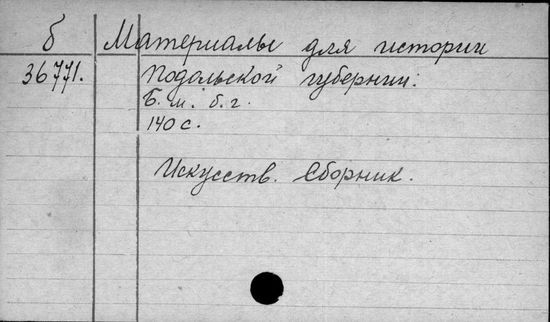 б Материалы для истории
36771. Подольской губернии.
Б. м. б. г.
140 с.
Искусств. Сборник.